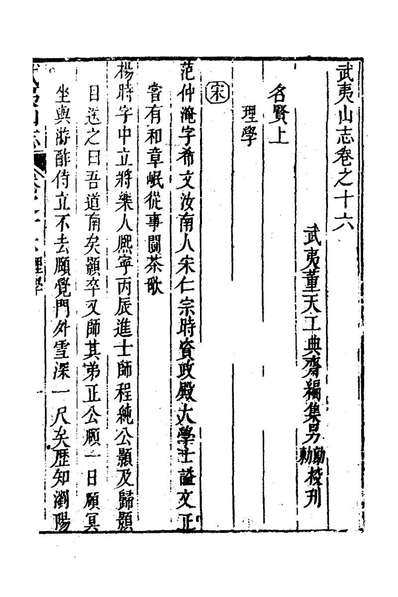 武夷山志卷之十六
武夷董天工典齋編集男勷勷校刊
名賢上
理學
宋
范仲淹字希文汝南人宋仁宗時資政殿大學士謚文正
嘗有和章岷從事鬬茶歌
楊時字中立將樂人熈寧丙辰進士師程純公顥及歸顥
目送之曰吾道南矣顥卒又師其弟正公頤一日頤冥
坐與游酢侍立不去頤覺門外雪深一尺矣歴知瀏陽
武夷山志
理學
一